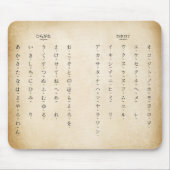 カタカナ
オコソトノホモヨロヲ
エケセテネヘメ レ
ウクスツヌフムユル
イキシチニヒミ リ
アカサタナハマヤラワン
ひらがな
おこそとのほもよろを
えけせてねへめ れ
うくすつぬふむゆる
いきしちにひみ り
あかさたなはまやらわん